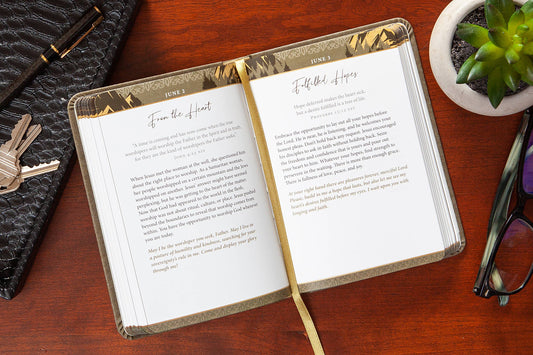 JUNE 2
From the Heart
"A time is coming and has now come when the true
worshipers will worship the Father in the Spirit and in truth,
for they are the kind of worshipers the Father seeks."
JOHN 4:23 NIV
When Jesus met the woman at the well, she questioned him
about the right place to worship. As a Samaritan woman,
her people worshipped on a certain mountain and the Jews
worshipped on another. Jesus' answer might have seemed
perplexing, but he was getting to the heart of the matter.
Now that God had appeared to the world in the flesh,
worship was not about ritual, culture, or place. Jesus pushed
beyond the boundaries to reveal that worship comes from
within. You have the opportunity to worship God wherever
you are today.
May I be the worshiper you seek, Father. May I live in
a posture of humility and kindness, searching for your
sovereignty's rule in me. Come and display your glory
through me!
JUNE 3
Fulfilled Hopes
Hope deferred makes the heart sick,
but a desire fulfilled is a tree of life.
PROVERBS 13:12
Embrace the opportunity to lay out all your hopes before
the Lord. He is near, he is listening, and he welcomes your
honest pleas. Don't hold back any request. Jesus encouraged
his disciples to ask in faith without holding back. Seize
the freedom and confidence that is yours and pour out
your heart to him. Whatever your hopes, find strength to
persevere in the waiting. There is more than enough grace.
There is fullness of love, peace, and joy.
At your right hand there are pleasures forever, merciful Lord
Please, build in me a hope that lasts, but also satisfy my
heart's desires fulfilled before my eyes. I wait upon you with
longing and faith.